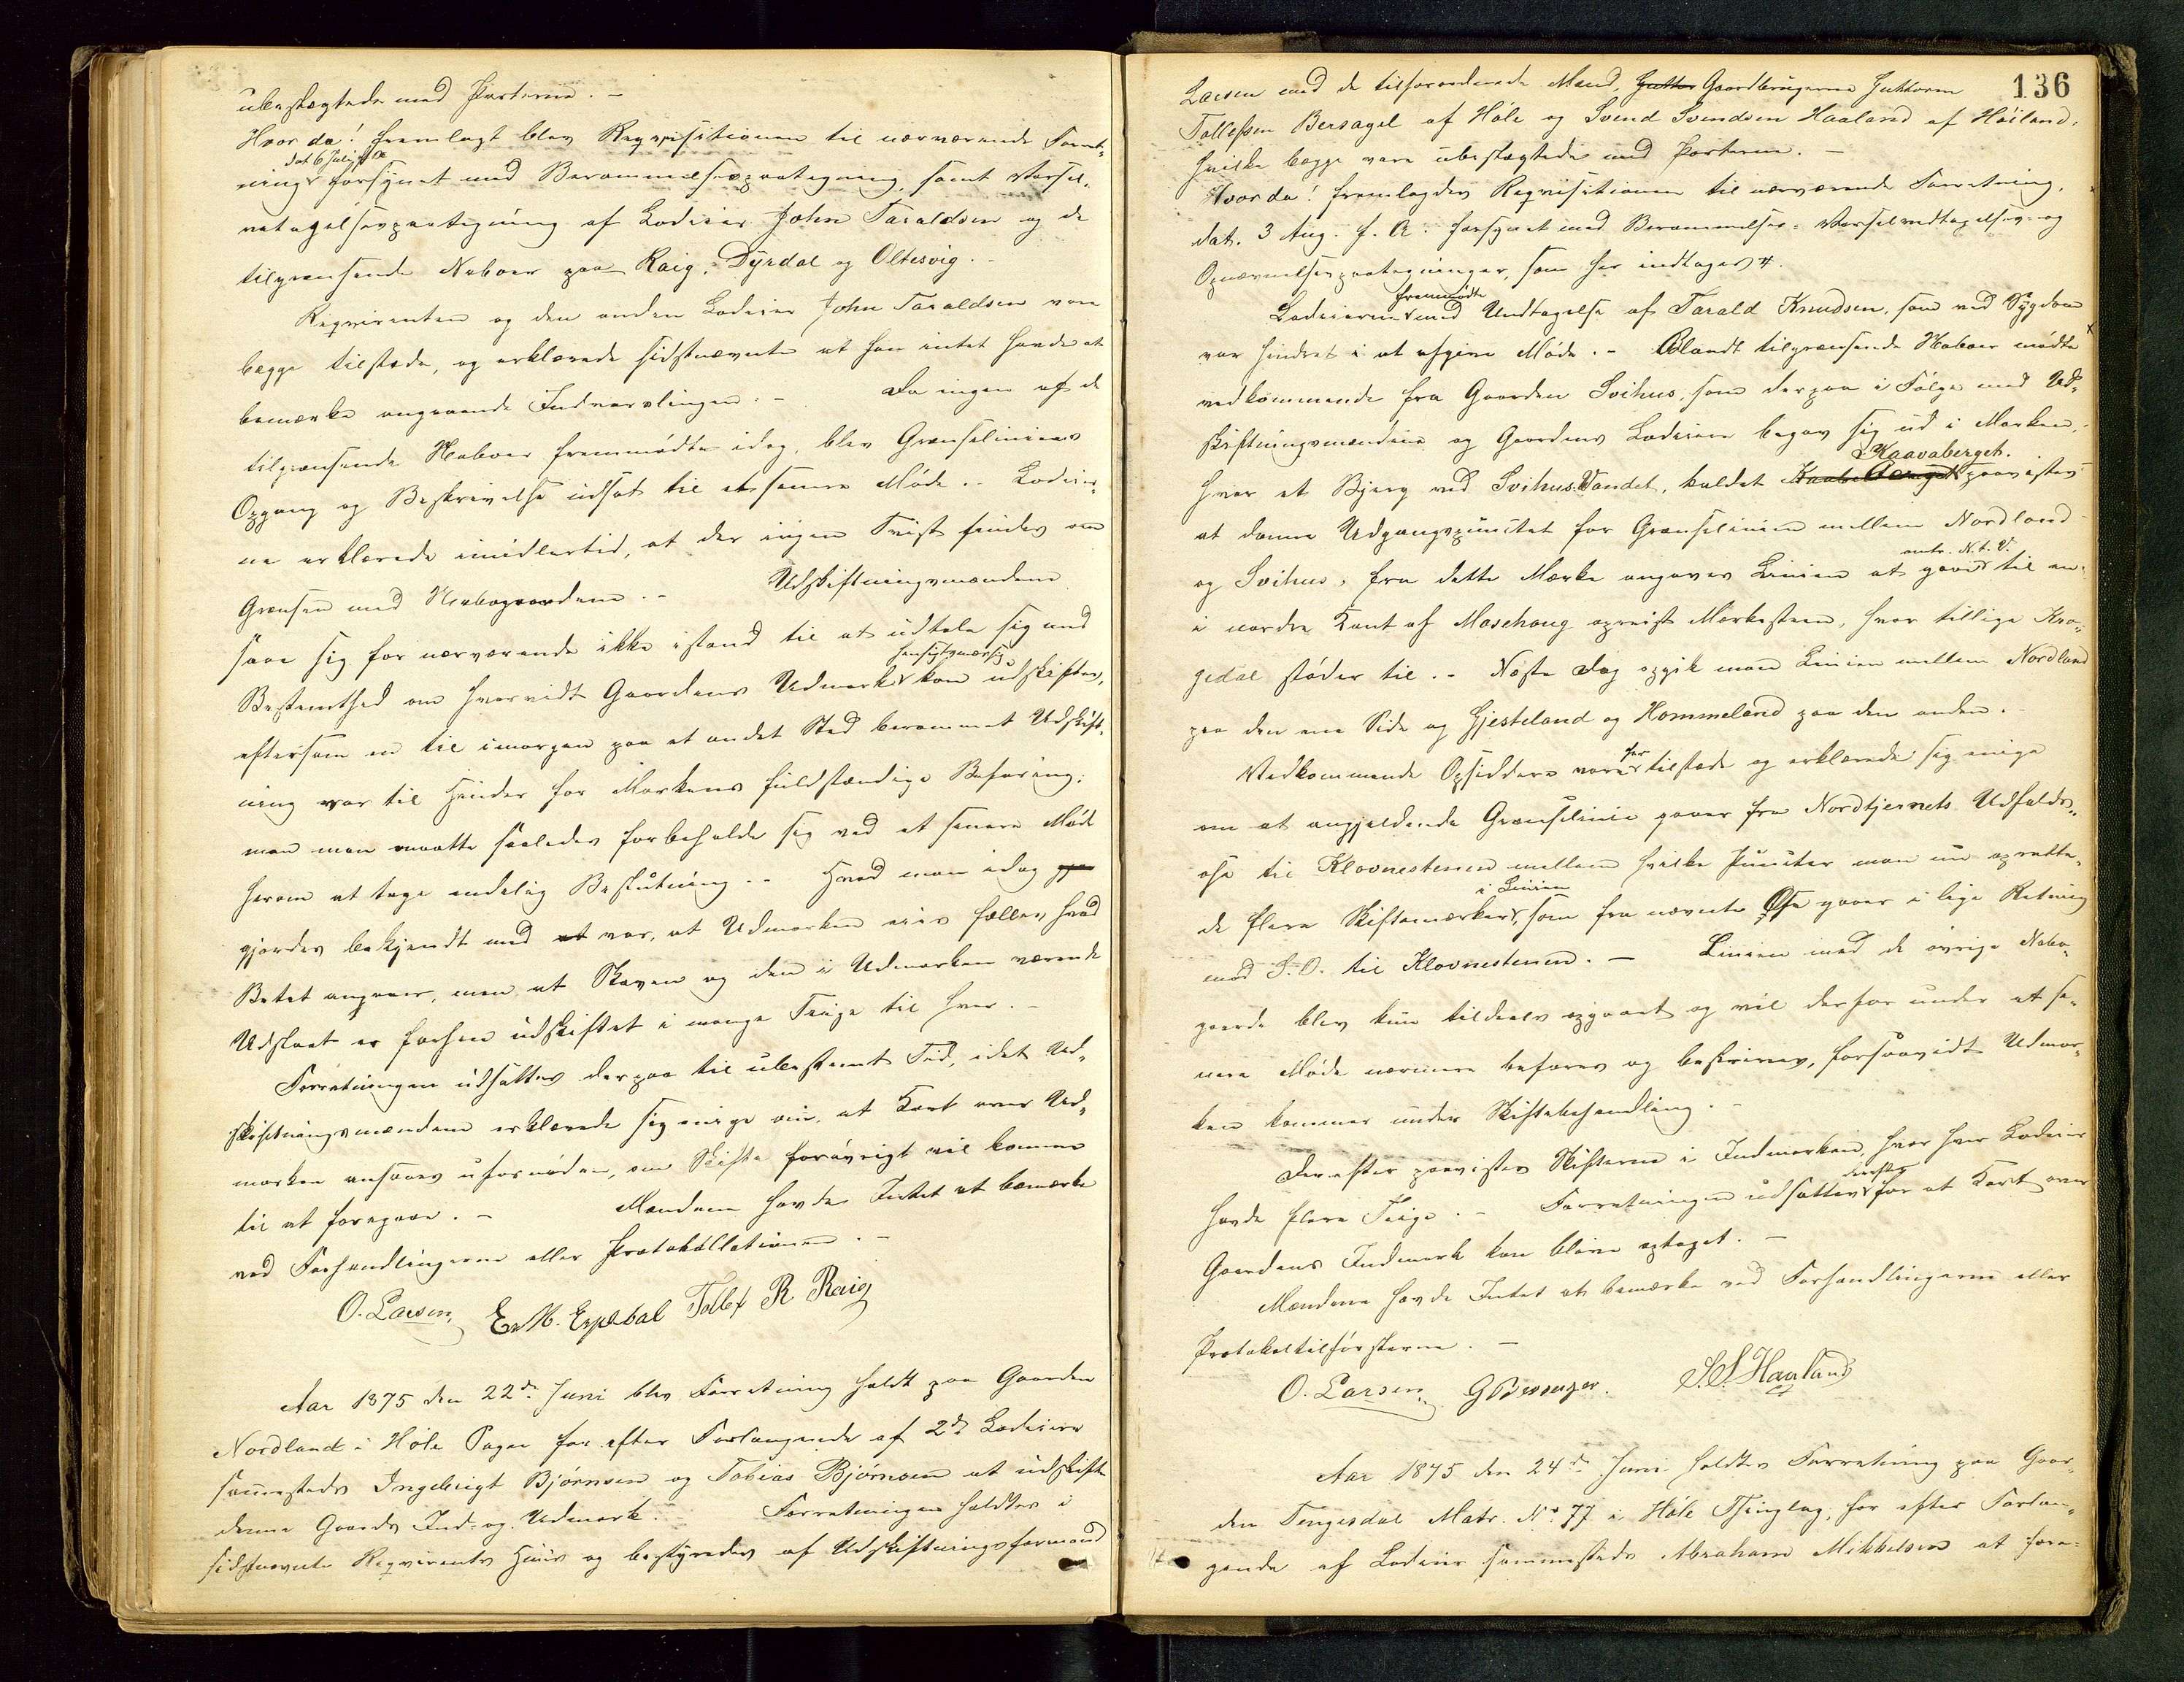 ubeslægtede med Parterne. –
Hvorda! fremlagt blev Reqvisitionen til nærværende Forret-
dat 6 Juli f. A.
ning forsynet med Berammelsespaategning, samt Varsel-
vedtagelsespaategning af Lodeier John Taraldsen og de
tilgrænsende Naboer paa Raig, Dyrdal og Oltesvig. –
Reqvirenten og den anden Lodeier John Taraldsen vare
begge tilstede, og erklærede sidstnævnte at han intet havde at
bemærke angaaende Indvarslingen. – Da ingen af de
tilgrænsende Naboer fremmødte idag, blev Grænseliniens
Opgang og Beskrivelse udsat til et senere Møde. – Lodeier-
ne erklærede imidlertid, at der ingen Tvist findes om
Grænsen med Nabogaardene. – Udskiftningsmændene
saae sig for nærværende ikke istand til at udtale sig med
hensigtmæssig
Bestemthed om hvorvidt Gaardens Udmark kan udskiftes,
eftersom en til imorgen paa et andet Sted berammet Udskift-
ning var til Hinder for Markens fuldstændige Befaring;
men man maatte saaledes forbeholde sig ved et senere Møde
herom at tage endelig Beslutning. – Hvad man idag gjo
gjordes bekjendt med at var, at Udmarken eies fælles hvad
Betet angaaer, men at Skoven og den i Udmarken værende
Udslaat er forhen udskiftet i mange Teige til hver. –
Forretningen udsattes derpaa til ubestemt Tid, idet Ud-
skiftningsmændene erklærede sig enige om, at Kart over Ud-
marken ansaaes ufornøden, om Skifte forøvrigt vil komme
til at foregaae. – Mændene havde Intet at bemærke
ved Forhandlingerne eller Protokollationen. –
O. Larsen E. M. Espedal Tollef R Raig
Aar 1875 den 22de Juni blev Forretning holdt paa Gaarden
Nordland i Høle Sogn for efter Forlangende af 2de Lodeiere
sammesteds Ingebrigt Bjørnsen og Tobias Bjørnsen at udskifte
denne Gaards Ind- og Udmark. – Forretningen holdtes i
sidstnævnte Reqvirents Huus og bestyredes af Udskiftningsformand
136
Larsen med de tilforordnede Mænd, Guttor Gaardbrugerne Guttorm
Tollefsen Bersagel af Høle og Svend Svendsen Haaland af Høiland,
hvilke begge vare ubeslægtede med Parterne. –
Hvorda! fremlagdes Reqvisitionen til nærværende Forretning,
dat. 3 Aug. f. A. forsynet med Berammelses- Varselvedtagelses- og
Opnævnelsespaategninger, som her indtages #.
fremmødte
Lodeierne med Undtagelse af Tarald Knudsen, som ved Sygdom
var hindret i at afgive Møde. – Blandt tilgrænsende Naboer mødte
vedkommende fra Gaarden Svihus, som derpaa i Følge med Ud-
skiftningsmændene og Gaardens Lodeiere begav sig ud i Marken,
Kaavaberget.
hvor et Bjerg ved Svihus Vandet, kaldet Kaabeberget paavistes
at danne Udgangspunctet for Grænselinien mellem Nordland
omtr. N. t. V.
og Svihus, fra dette Mærke angaves Linien at gaae til en
i nordre Kant af Moschaug opreist Mærkesteen, hvor tillige Kro-
gedal støder til. – Næste Dag opgik man Linien mellem Nordland
paa den ene Side og Gjesteland og Hommeland paa den anden. –
her
Vedkommende Opsiddere vare tilstede og erklærede sig enige
om at angjeldende Grænselinie gaaer fra Nordtjernets Udfalds-
ose til Klovnestenen mellem hvilke Puncter man nu oprette-
i Linien
de flere Skiftemærker, som fra nævnte Ose gaaer i lige Retning
mod S.O. til Klovnestenen. – Linien med de øvrige Nabo-
gaarde blev kun tildeels opgaaet og vil derfor under et se-
nere Møde nærmere befares og beskrives, forsaavidt Udmar-
ken kommer under Skiftebehandling. –
Derefter paavistes Skifterne i Indmarken, hvor hver Lodeier
derefter
havde flere Teige. – Forretningen udsattes for at Kart over
Gaardens Indmark kan blive optaget. –
Mændene havde Intet at bemærke ved Forhandlingerne eller
Protokoltilførslerne. –
O. Larsen G Bersager. S. S. Haaland
Aar 1875 den 24de Juni holdtes Forretning paa Gaar-
den Tengesdal Matr. No 77 i Høle Thinglag, for efter Forlan-
gende af Lodeier sammesteds Abraham Mikkelsen at fore-